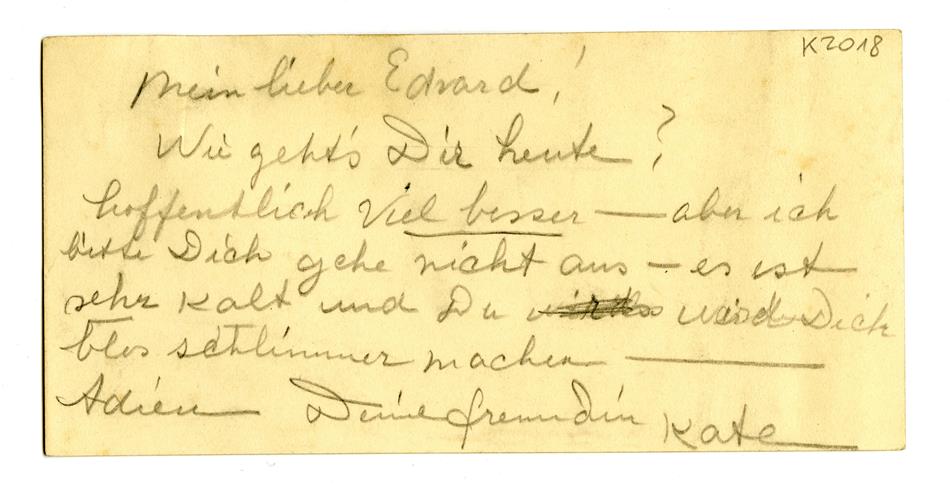 K2018
Mein lieber Edvard!
Wie geht's Dir heute?
hoffentlich Viel besser — aber ich
bitte Dich gehe nicht aus — es ist
sehr Kalt und Du wird Dich
blos schlimmer machen —
Adieu Deine freundin Kate